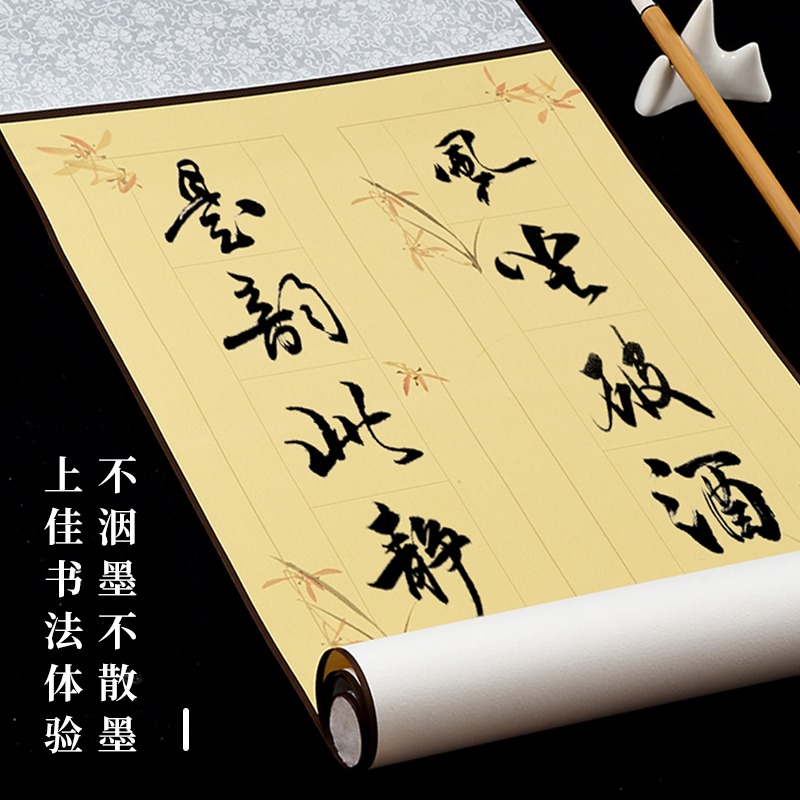 風破酒
韵此静
不洇墨不散墨
上佳书法体验